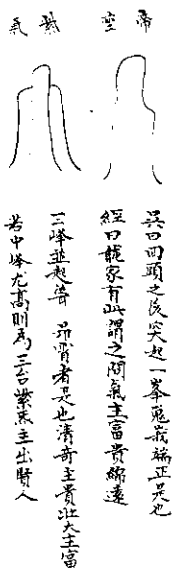 帝座
吳曰回頭之後突起一峯嵬峩端正是也
經曰龍家有此謂之閏氣主富貴綿遠
紫氣
三峰並起皆昂霄者是也清奇主貴壯大主富
若中峰尤高則為三台紫炁主出賢人